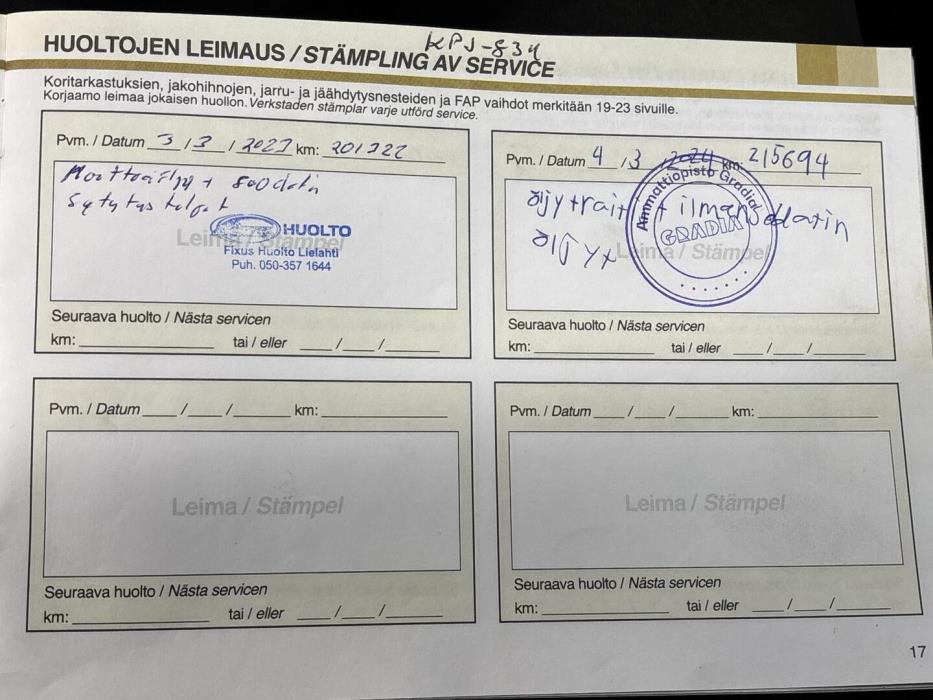 KPJ-834
HUOLTOJEN LEIMAUS / STÄMPLING AV SERVICE
Koritarkastuksien, jakohihnojen, jarru- ja jäähdytysnesteiden ja FAP vaihdot merkitään 19-23 sivuille.
Korjaamo leimaa jokaisen huollon. Verkstaden stämplar varje utförd service.
Pvm. / Datum 3 / 3 / 2023 km: 201322
Moottoriöljy + suodatin
Sytytystulpat
Leima / Stämpel
HUOLTO
Fixus Huolto Lielahti
Puh. 050-357 1644
Seuraava huolto / Nästa servicen
km: tai / eller / /
Pvm. / Datum 4 / 3 / 2024 km: 215694
öljyt
+ ilmansuodatin
öljyt
Leima / Stämpel
Ammattiopisto Gradia
GRADIA
Seuraava huolto / Nästa servicen
km: tai / eller / /
Pvm. / Datum / / km:
Leima / Stämpel
Seuraava huolto / Nästa servicen
km: tai / eller / /
Pvm. / Datum / / km:
Leima / Stämpel
Seuraava huolto / Nästa servicen
km: tai / eller / /
17